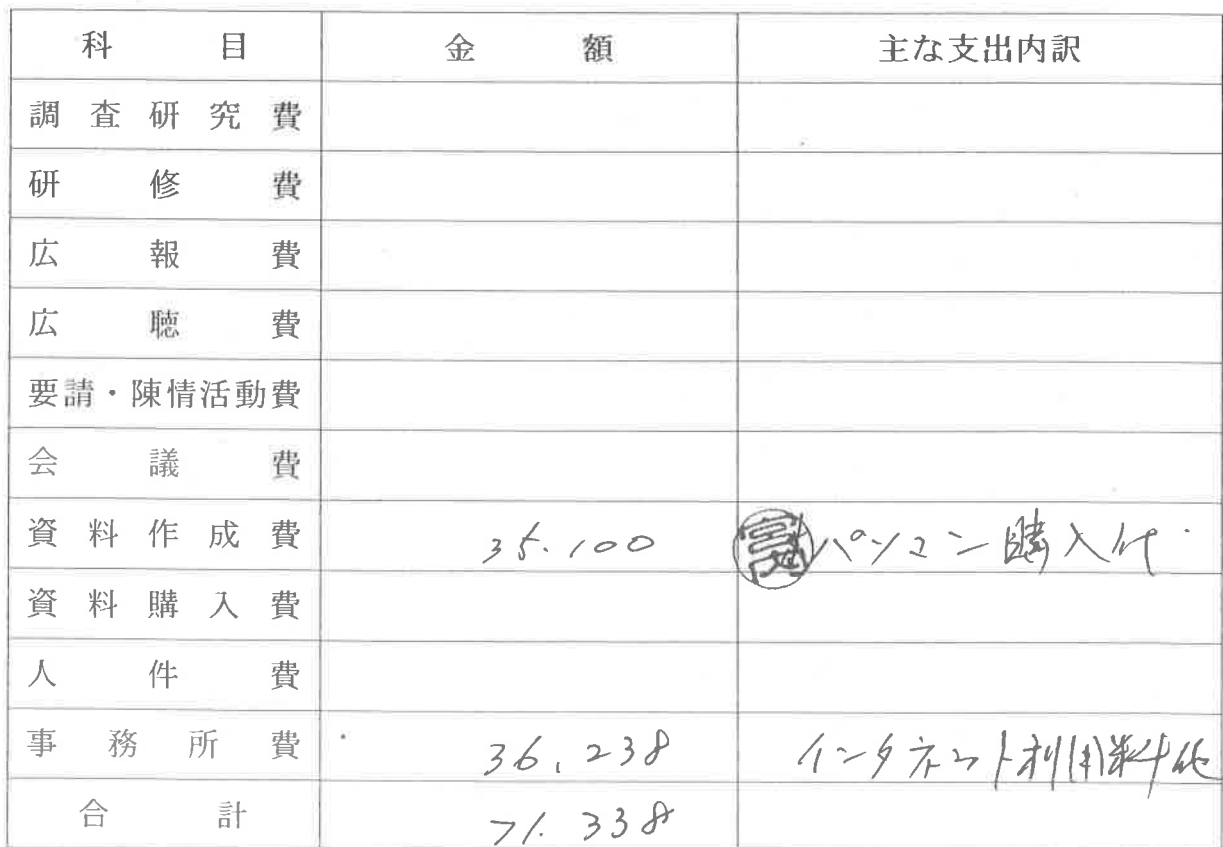 科目 金額 主な支出内訳
調査研究費
研修費
広報費
広聴費
要請・陳情活動費
会議費
資料作成費 35.100 パソコン購入代
資料購入費
人件費
事務所費 36,238 インタネット利用料他
合計 71.338